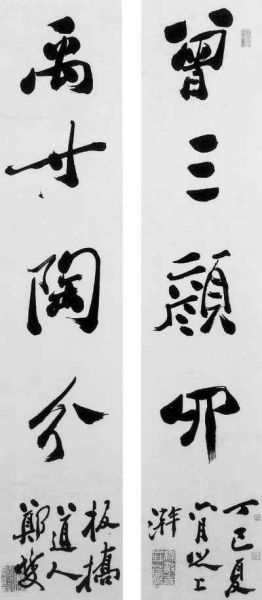 曾三顏四
丁巳夏
六月上
澣
禹寸陶分
板橋
道人
鄭燮